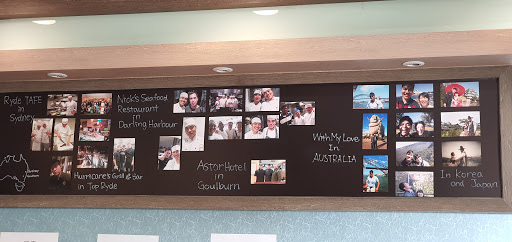 Ryde TAFE
in
Sydney
Hurricane's Grill & Bar
in Top Ryde
Nick's Seafood
Restaurant
in
Darling Harbour
Astor Hotel
in
Goulburn
With My Love
in
AUSTRALIA
In Korea
and Japan